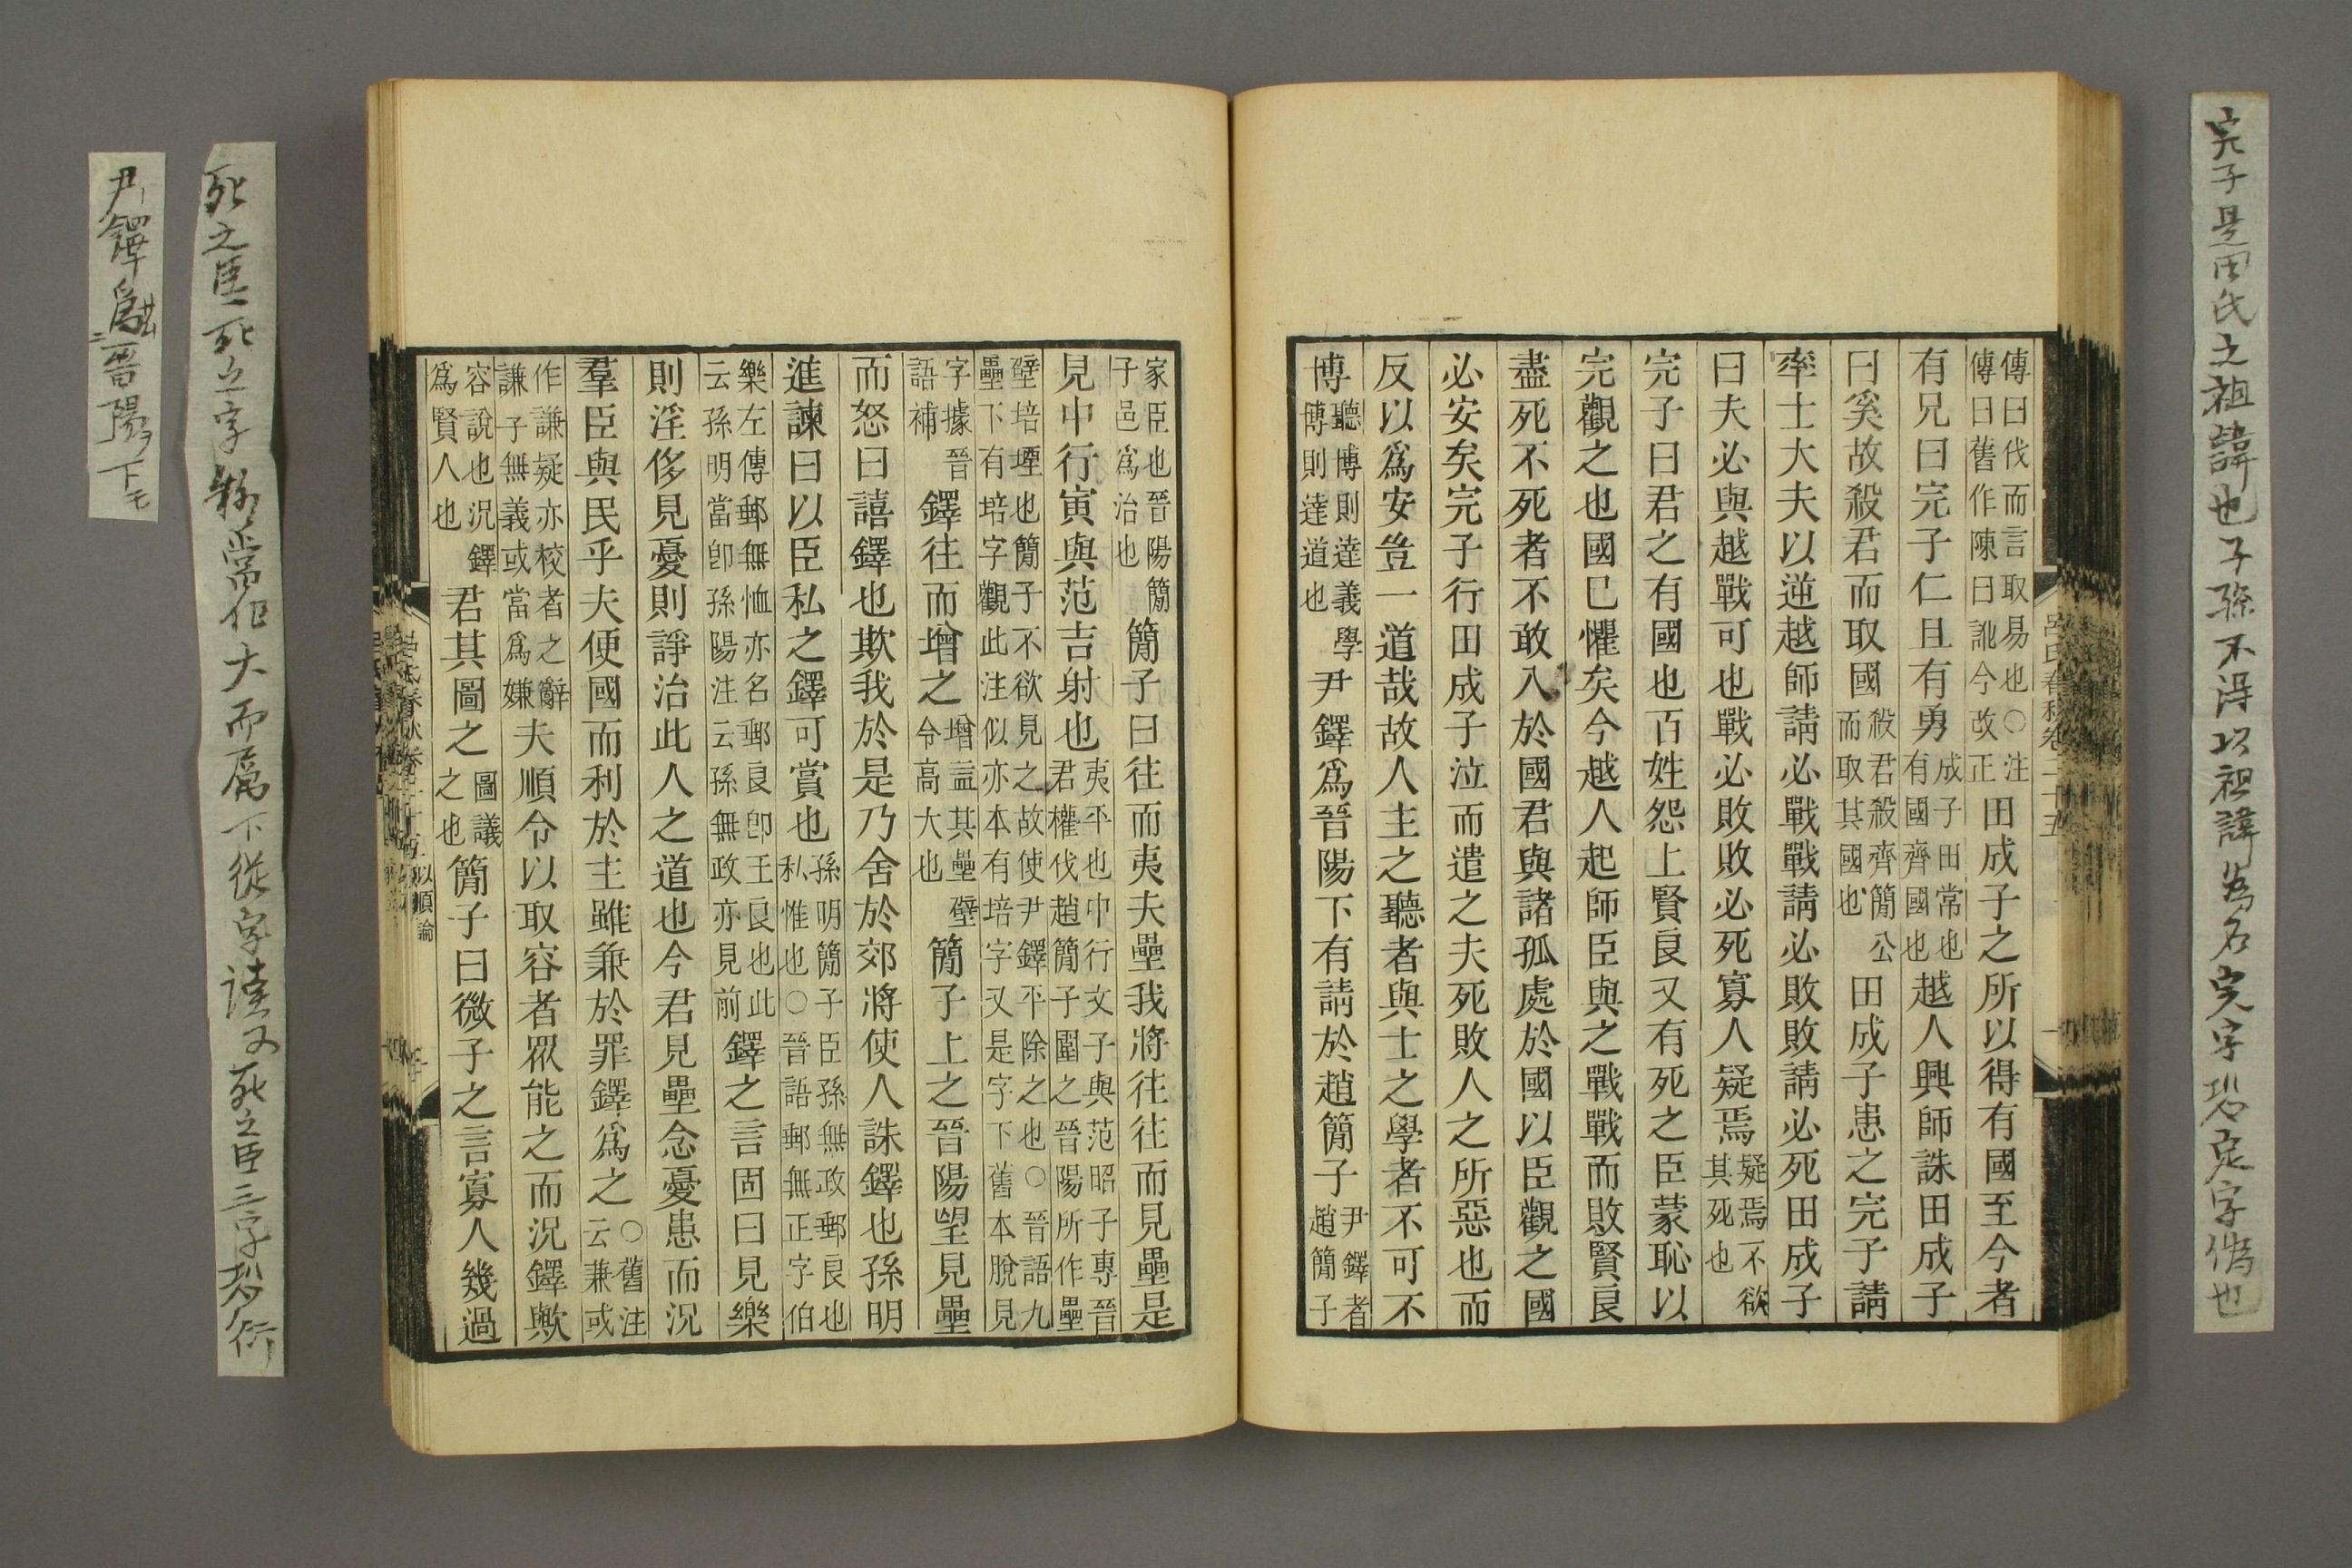 完子是田氏之祖諱也子孫不得以祖諱爲名完字恐㝎字譌也
呂氏春秋卷二十五
傳曰伐而言取易也〇注
傳曰舊作陳曰訛今改正
田成子之所以得有國至今者
有兄曰完子仁且有勇
成子田常也
有國齊國也
越人興師誅田成子
曰奚故殺君而取國
殺君殺齊簡公
而取其國也
田成子患之完子請
率士大夫以逆越師請必戰戰請必敗敗請必死田成子
曰夫必與越戰可也戰必敗敗必死寡人疑焉
疑焉不欲
其死也
完子曰君之有國也百姓怨上賢良又有死之臣蒙恥以
完觀之也國已懼矣今越人起師臣與之戰戰而敗賢良
盡死不死者不敢入於國君與諸孤處於國以臣觀之國
必安矣完子行田成子泣而遣之夫死敗人之所惡也而
反以爲安豈一道哉故人主之聽者與士之學者不可不
博
聽博則達義學
博則達道也
尹鐸爲晉陽下有請於趙簡子
尹鐸者
趙簡子
家臣也晉陽簡
子邑爲治也
簡子曰往而夷夫壘我將往往而見壘是
見中行寅與范吉射也
夷平也中行文子與范昭子專晉
君權伐趙簡子圍之晉陽所作壘
壁培堙也簡子不欲見之故使尹鐸平除之也〇晉語九
壘下有培字觀此注似亦本有培字又是字下舊本脫見
字據晉
語補
鐸往而增之
增益其壘壁
令高大也
簡子上之晉陽望見壘
而怒曰譆鐸也欺我於是乃舍於郊將使人誅鐸也孫明
進諫曰以臣私之鐸可賞也
孫明簡子臣孫無政郵良也
私惟也〇晉語郵無正字伯
樂左傳郵無恤亦名郵良卽王良也此
云孫明當卽孫陽注云孫無政亦見前
鐸之言固曰見樂
則淫侈見憂則諍治此人之道也今君見壘念憂患而況
羣臣與民乎夫便國而利於主雖兼於罪鐸爲之
〇舊注
云兼或
作謙疑亦校者之辭
謙子無義或當爲嫌
夫順令以取容者眾能之而況鐸歟
容說也況鐸
爲賢人也
君其圖之
圖議
之也
簡子曰微子之言寡人幾過
以順論
死之臣
死之字
當作大而屬下從字讀又死之臣三字恐衍
尹鐸爲晉陽下